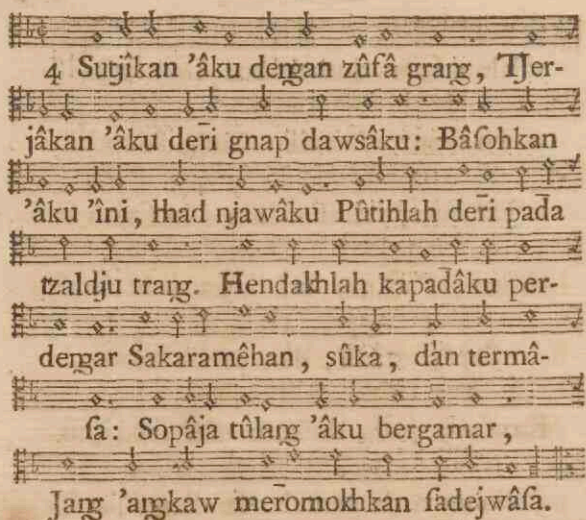 4 Sutjîkan 'âku dengan zûfâ grang, Tjer-
jâkan 'âku derī gnap dawsâku: Bâſohkan
'âku 'înī, hhad njawâku Pûtihlah derī pada
tzaldju trang. Hendakhlah kapadâku per-
dengar Sakaramêhan, sûka, dân termâ-
ſa: Sopâja tûlang 'âku bergamar,
Jang 'angkaw meromokhkan ſadejwâſa.